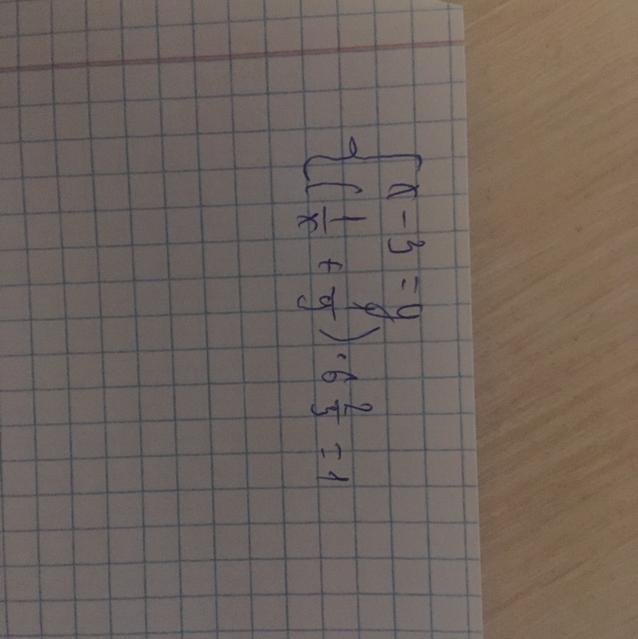 x - 3 = y
(1/x + 1/y) · 6 2/3 = 1